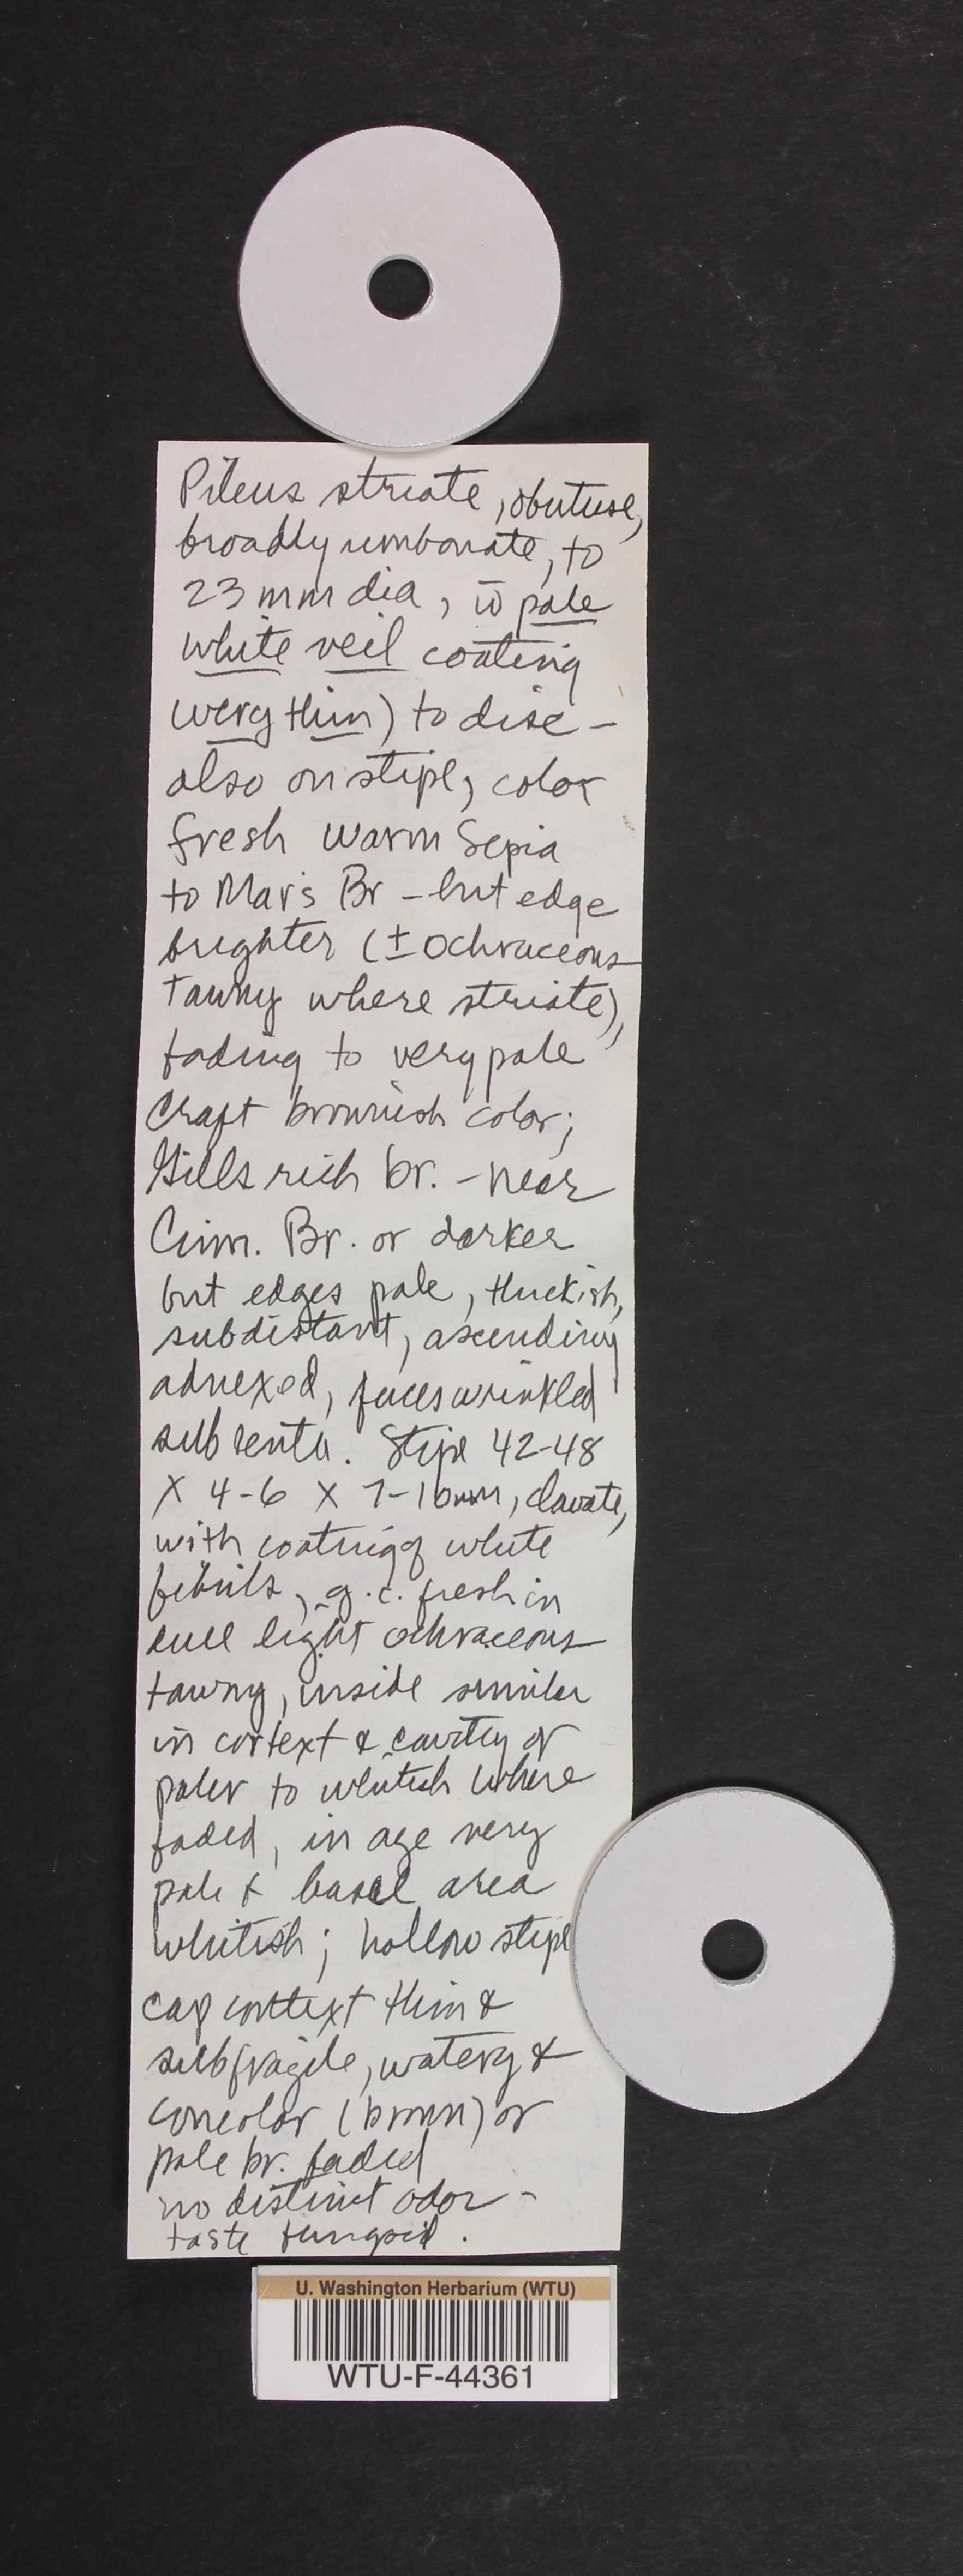 Pileus striate, obutuse,
broadly umbonate, to
23 mm dia, w̄ pale
white veil coating
(very thin) to disc -
also on stipe, color
fresh warm Sepia
to Mars Br - but edge
brighter (± ochraceous
tawny where striate),
fading to very pale
Craft brownish color;
Gills rich br. - near
Cinn. Br. or darker
but edges pale, thickish,
subdistant, ascending
adnexed, faces wrinkled
sub lente. Stipe 42-48
X 4-6 X 7-10mm, clavate,
with coating of white
fibrils, g.c. fresh in
cull light ochraceous
tawny, inside similar
in cortext & cavity or
paler to whitish where
faded, in age very
pale & basal area
whitish; hollow stipe
cap context thin &
subfragile, watery &
concolor (brown) or
pale br. faded
no distinct odor -
taste fungoid.
U. Washington Herbarium (WTU)
WTU-F-44361